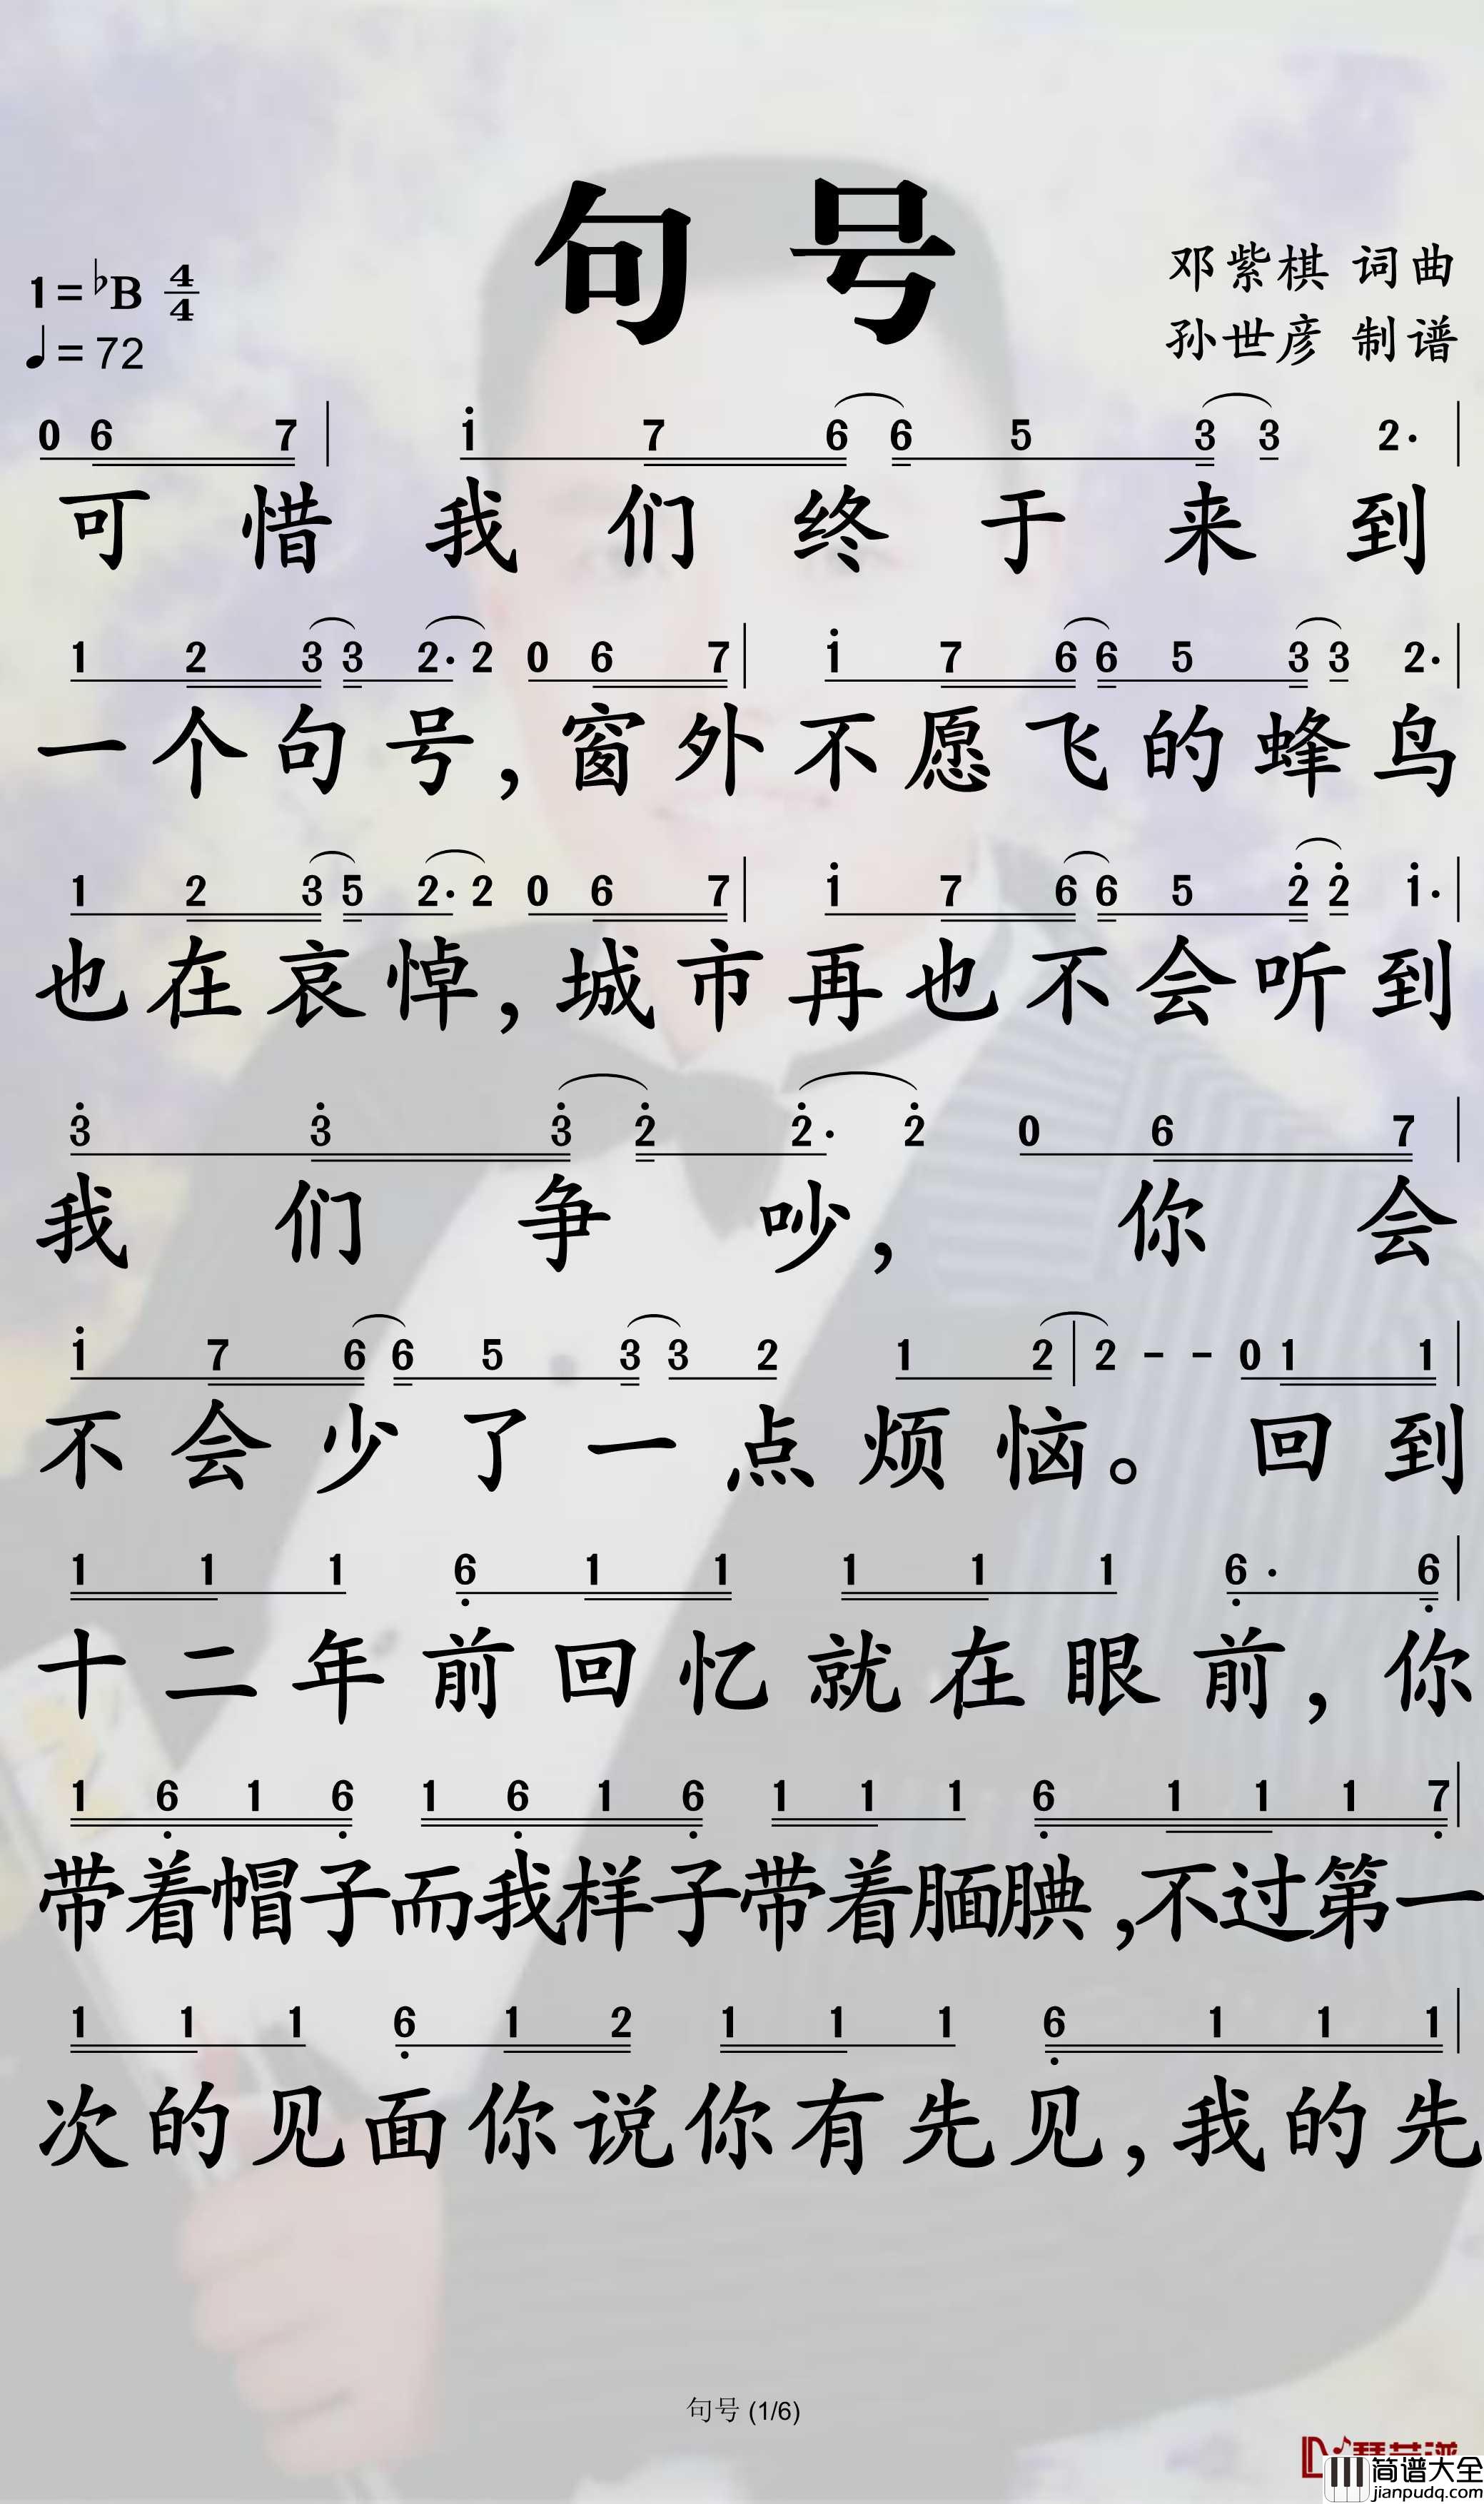 句号
1=♭B 4/4
♩=72
邓紫棋 词曲
孙世彦 制谱
0 6 7 | i 7 6 6 5 3 3 2· |
可惜我们终于来到
1 2 3 3 2· 2 0 6 7 | i 7 6 6 5 3 3 2· |
一个句号,窗外不愿飞的蜂鸟
1 2 3 5 2· 2 0 6 7 | i 7 6 6 5 2̇ 2̇ i· |
也在哀悼,城市再也不会听到
3̇ 3̇ 3̇ 2̇ 2̇· 2̇ 0 6 7 |
我们争吵,你会
i 7 6 6 5 3 3 2 1 2 | 2 - - 0 1 1 |
不会少了一点烦恼。回到
1 1 1 6̣ 1 1 1 1 1 6̣· 6̣ |
十二年前回忆就在眼前,你
1 6̣ 1 6̣ 1 6̣ 1 6̣ 1 1 1 6̣ 1 1 1 7̣ |
带着帽子而我样子带着腼腆,不过第一
1 1 1 6̣ 1 2 1 1 1 6̣ 1 1 1 |
次的见面你说你有先见,我的先
句号 (1/6)
简谱大全
jianpudq.com